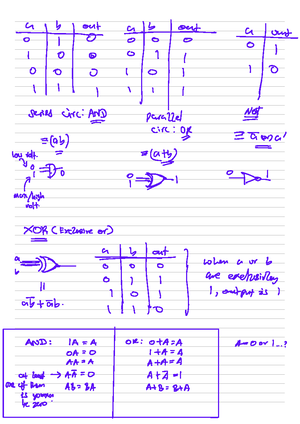 a b out
0 1 0
1 0 0
0 0 0
1 1 1
a b out
0 0 0
0 1 1
1 0 1
1 1 1
a out
0 1
1 0
series circ: AND
≡(ab)
low volt.
0
1
0
max/high
volt
parallel
circ: OR
≡(a+b)
0
1
1
NOT
≡ a̅ or a'
0 1
XOR (Exclusive or)
a
b
=
a̅b + a̅b.
a b out
0 0 0
0 1 1
1 0 1
1 1 0
when a or b
are exclusively
1, output is 1
AND: 1A = A
0A = 0
AA = A
at least → AA̅ = 0
one of them
is gonna
be zero
AB = BA
OR: 0+A=A
1+A=A
A+A=A
A+A̅=1
A+B=B+A
A=0 or 1...?